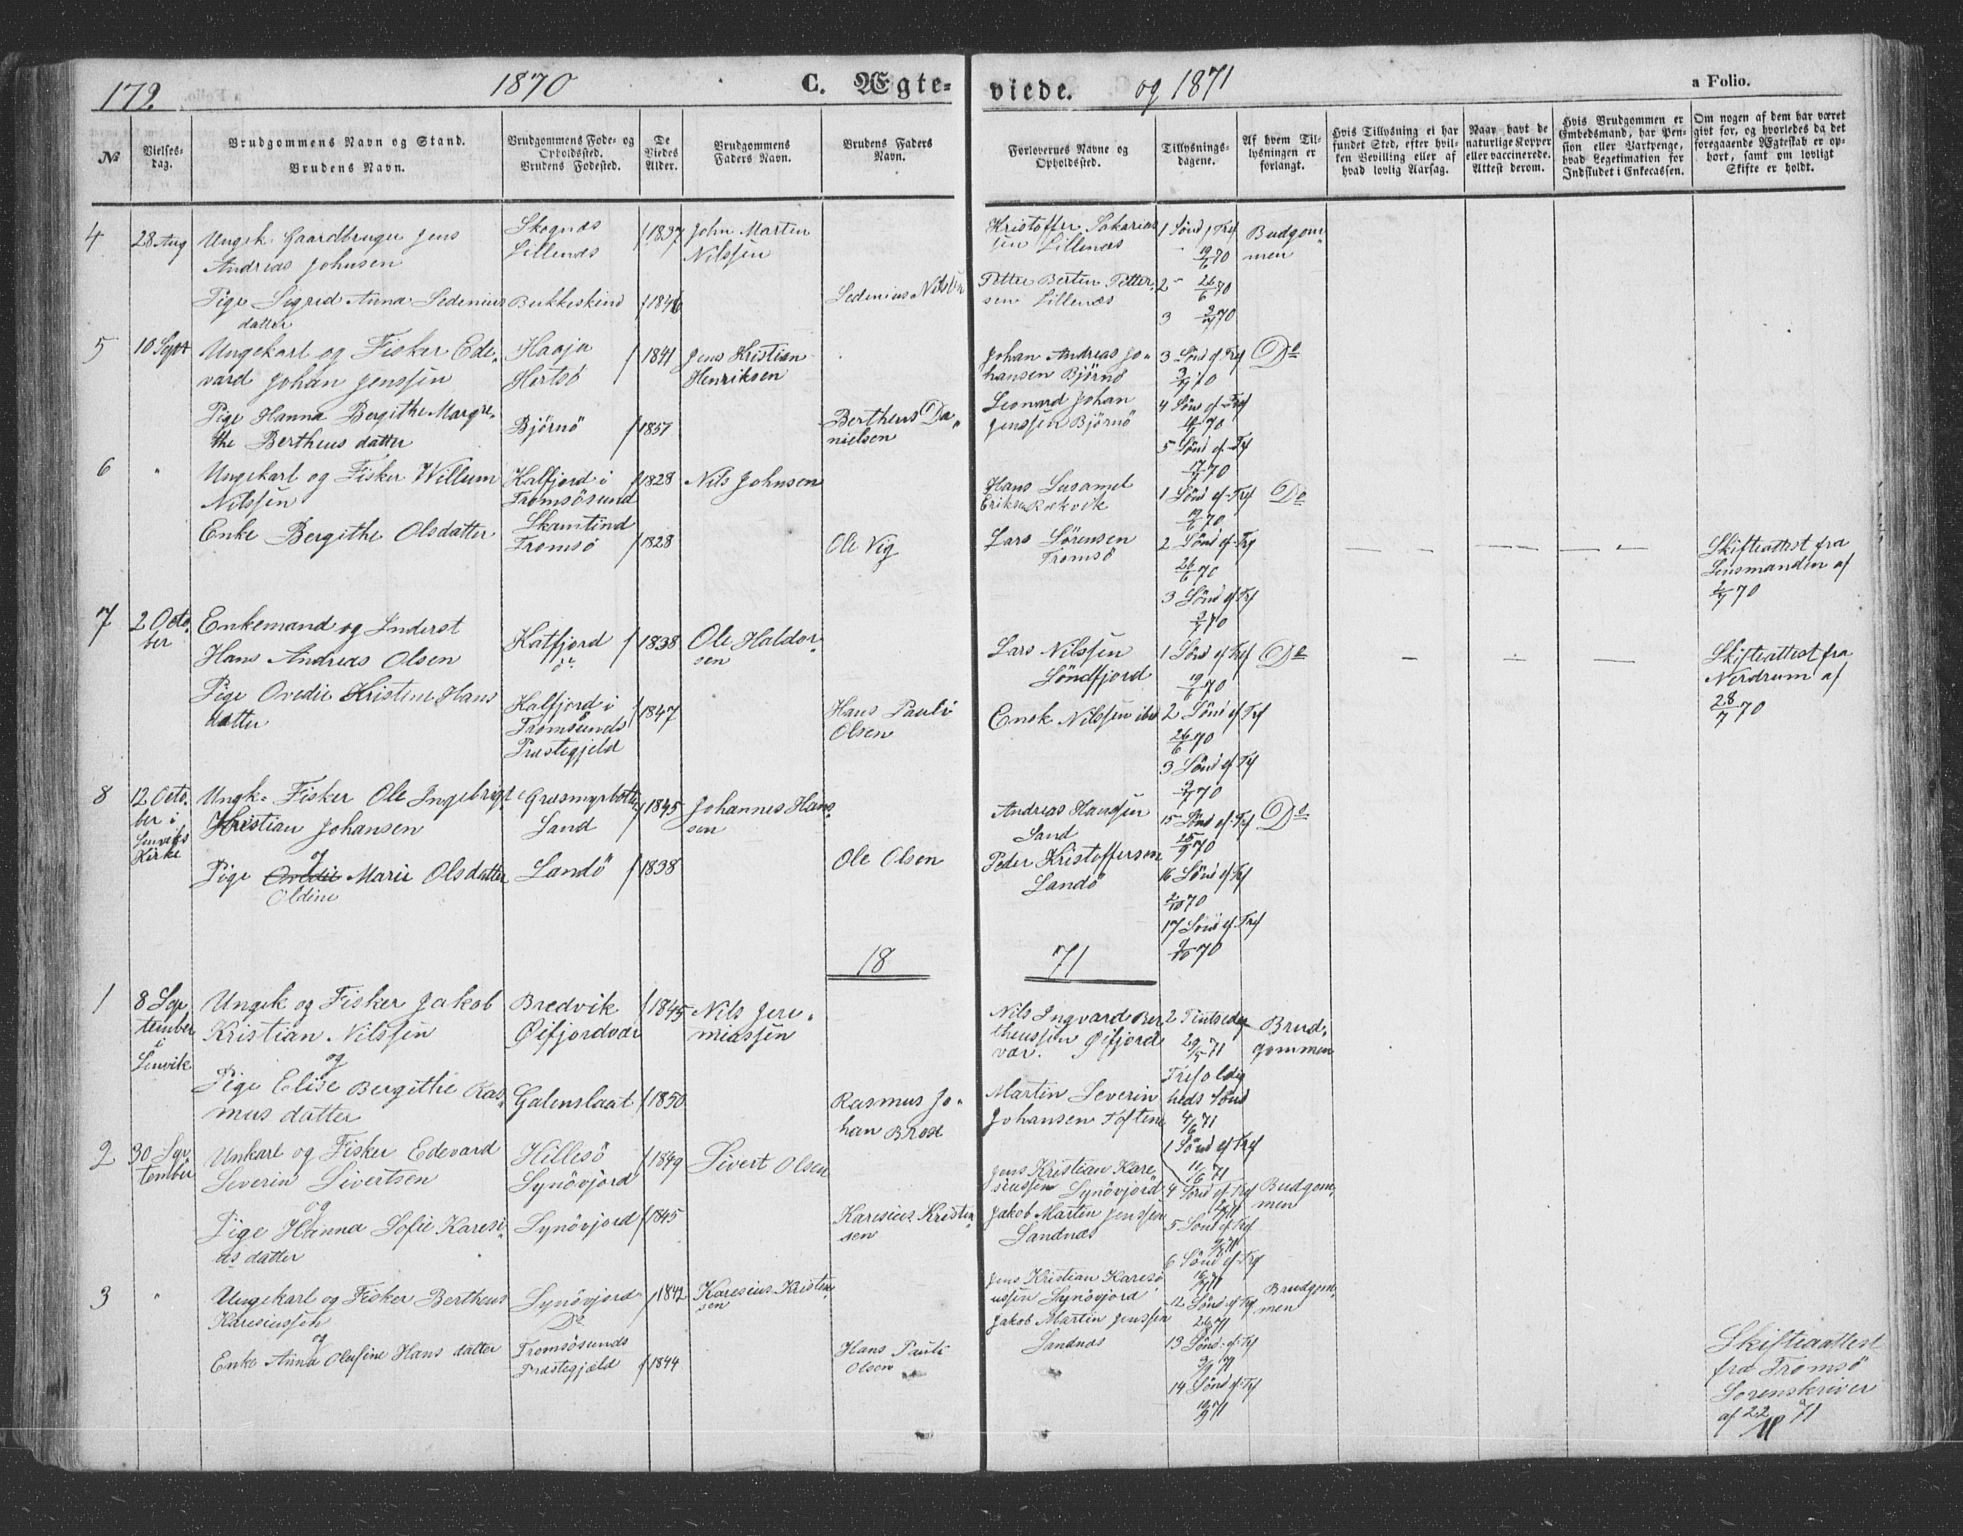 172.
1870
C. Ægte-
viede.
og 1871
a Folio.
№
Vielses-
dag.
Brudgommens Navn og Stand.
Brudens Navn.
Brudgommens Føde- og
Opholdssted.
Brudens Fødested.
De
Viedes
Alder.
Brudgommens
Faders Navn.
Brudens Faders
Navn.
Forlovernes Navne og
Opholdssted.
Tillysnings-
dagene.
Af hvem Til-
lysningen er
forlangt.
Hvis Tillysning ei har
fundet Sted, efter hvil-
ken Bevilling eller af
hvad lovlig Aarsag.
Naar havt de
naturlige Kopper
eller vaccinerede.
Attest derom.
Hvis Brudgommen er
Embedsmand, har Pen-
sion eller Vartpenge,
hvad Legetimation for
Indskudet i Enkecassen.
Om nogen af dem har været
gift før, og hvorledes da det
foregaaende Ægteskab er op-
hørt, samt om lovligt
Skifte er holdt.
4
28 Aug
Ungk. Gaardbruger Jens
Andreas Johnsen
Skognæs
Lillenæs
1837
John Martin
Nilssen
Kristoffer Sakarias
sen Lillenæs
1 Sønd f Tref
19/6 70
Budgom-
men
Pige Sigrid Anna Sedenius
datter
Bukkeskind
1846
Sedenius Nilsen
Petter Bertin Petter-
sen Lillenæs
2 - 26/6 70
3 3/7 70
5
10 Sept
Ungekarl og Fisker Ede-
vard Johan Jenssen
Haaja
Hertsø
1841
Jens Kristian
Henriksen
Johan Andreas Jo-
hansen Bjørnø
3 Sønd ef Tref
3/7 70
Do
Pige Hanna Bergithe Margre-
the Bertheus datter
Bjørnø
1851
Bertheus Da-
nielsen
Leonard Johan
Jenssen Bjørnø
4 Sønd ef Tref
70
5 Sønd ef Tref
17/7 70
6
"
Ungekarl og Fisker Willum
Nilssen
Kalfjord i
Tromsösund
1828
Nils Johnsen
Hans Susamel
Eriksen Rækvik
1 Sønd ef Tref
19/6 70
Do
Enke Bergithe Olsdatter
Skamtind
Tromsö
1828
Ole Vig
Lars Sörensen
Tromsö
2 Sönd ef Tref
26/6 70
3 Sönd ef Tref
3/7 70
Skifteattest fra
Lensmanden af
2/7 70
7
2 Octo-
ber
Enkemand og Inderst
Hans Andreas Olsen
Katfjord
1838
Ole Haldor-
sen
Lars Nilssen
Söndfjord
1 Sönd ef Tref
19/6 70
Do
Skifteattest fra
Nordrum af
28/7 70
Pige Ovedie Kristine Hans
datter
Kalfjord i
Tromsösunds
Præstegjeld
1847
Hans Pauli
Olsen
Enok Nilssen ibid
2 Sönd ef Tref
26/6 70
3 Sönd ef Tref
3/7 70
8
12 Octo-
ber i
Lenviks
Kirke
Ungk. Fisker Ole Ingebrigt
Kristian Johansen
og
Græsmyrbotten
Sand
1845
Johannes Han-
sen
Andreas Hansen
Sand
15 Sönd ef Tref
25/9 70
Do
Pige Ovedie Marie Olsdatter
Oldine
Landö
1838
Ole Olsen
Peder Kristoffersen
Landö
16 Sönd ef Tref
2/10 70
17 Sönd ef Tref
9/10 70
18
71
1
8 Sep
tember
i
Lenvik
Ungk og Fisker Jakob
Kristian Nilssen
og
Bredvik
Øifjordvær
1845
Nils Jere-
miassen
Nils Ingvard Ber
theussen Øifjord
vær.
2 Pintsedag
29/5 71
Brud-
gommen
Pige Elise Bergithe Ras-
mus datter
Galenslaat
1850
Rasmus Jo-
han Brox
Martin Severin
Johansen Toften
Trefoldig
heds Sönd
4/6 71
1 Sönd ef Tref
11/6 71
2
30 Sep
tember
Unkarl og Fisker Edevard
Severin Sivertsen
og
Hillesö
Synövjord
1849
Sivert Olsen
Jens Kristian Kare-
siussen Synövjord
4 Sönd ef Tref
71
Budgom-
men
Pige Hanna Sofie Karesi-
us datter
Synövjord
1845
Karesius Kristen-
sen
Jakob Martin Jenssen
Sandnæs
5 Sönd ef Tref
71
6 Sönd ef Tref
16/7 71
3
"
Ungekarl og Fisker Bertheus
Karesiussen
og
Synövjord
Do
1842
Karesius Kristen-
sen
Jens Kristian Karesi
ussen Synövjord
12 Sönd ef Tref
26/8 71
Brudgom-
men
Enke Anna Olufine Hans datter
Tromsösunds
Præstegjæld
1844
Hans Pauli
Olsen
Jakob Martin Jenssen
Sandnæs
13 Sönd ef Tref
3/9 71
14 Sönd ef Tref
10/9 71
Skifteattest
fra Tromsö
Sorenskriver
af 22 71